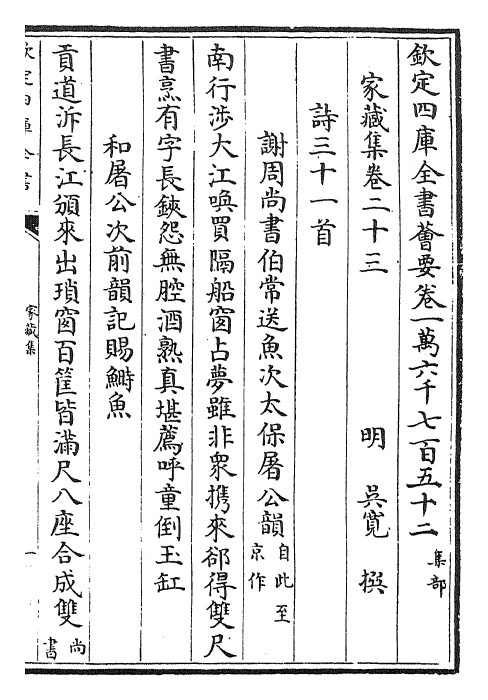 欽定四庫全書薈要卷一萬六千七百五十二 集部
家藏集卷二十三 明 吳寬 撰
詩三十一首
謝周尚書伯常送魚次太保屠公韻 自此至京作
南行涉大江喚買隔船窗占夢雖非衆携來郤得雙尺
書烹有字長鋏怨無腔酒熟真堪薦呼童倒玉缸
和屠公次前韻記賜鰣魚
貢道泝長江頒來出瑣窗百筐皆滿尺八座合成雙 尚書
欽定四庫全書
家藏集
一